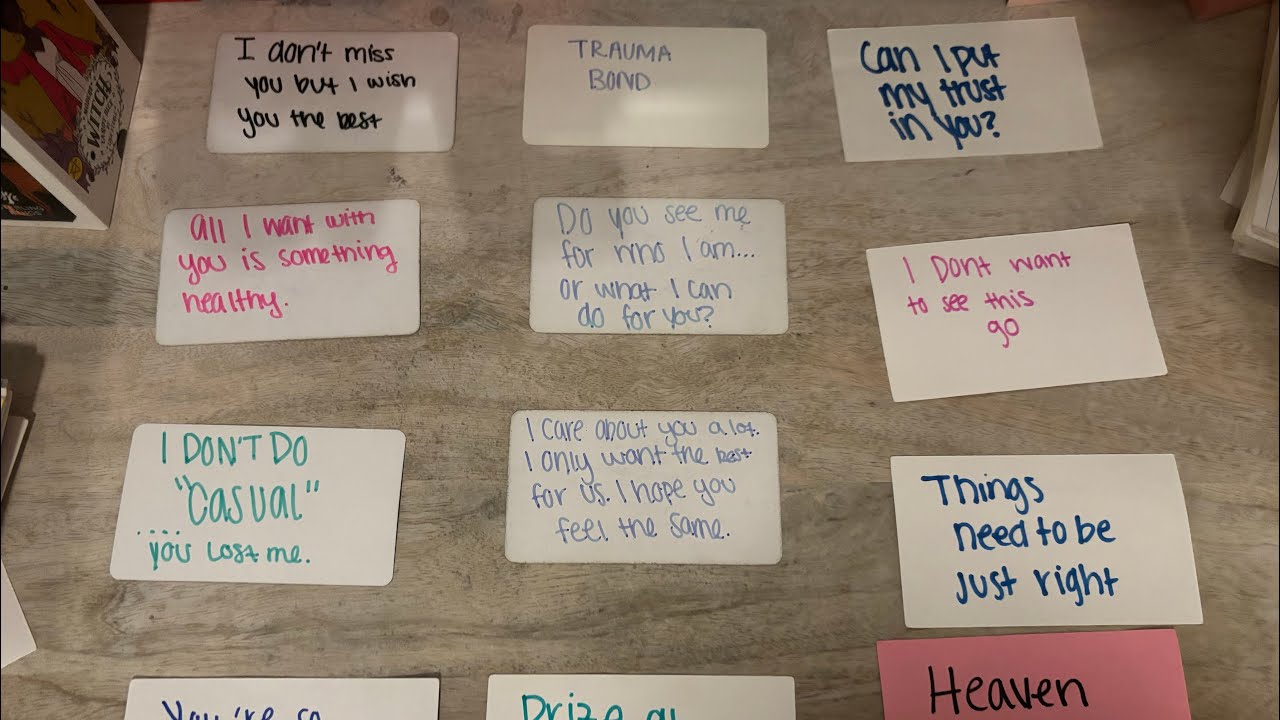 I don't miss
you but I wish
you the best
TRAUMA
BOND
Can I put
my trust
in you?
WITCH
all I want with
you is something
healthy.
Do you see me
for who I am...
or what I can
do for you?
I Dont want
to see this
go
I DON'T DO
"Casual"
....
you Lost me.
I care about you a lot.
I only want the best
for us. I hope you
feel the same.
Things
need to be
just right
You're so
Heaven